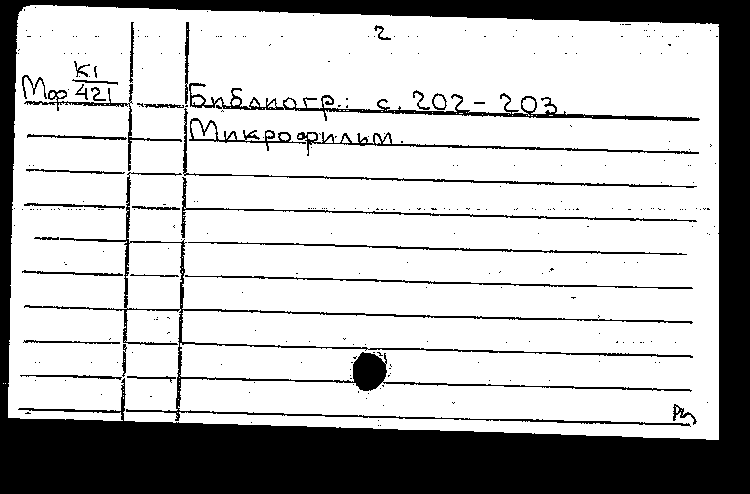 2
Мф К1/421
Библиогр.: с. 202-203.
Микрофильм.